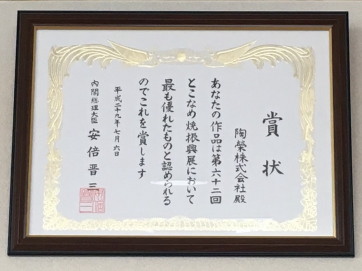 賞状
陶榮株式会社殿
あなたの作品は第六十二回
とこなめ焼振興展において
最も優れたものと認められる
のでこれを賞します
平成二十九年七月六日
内閣総理大臣 安倍晋三